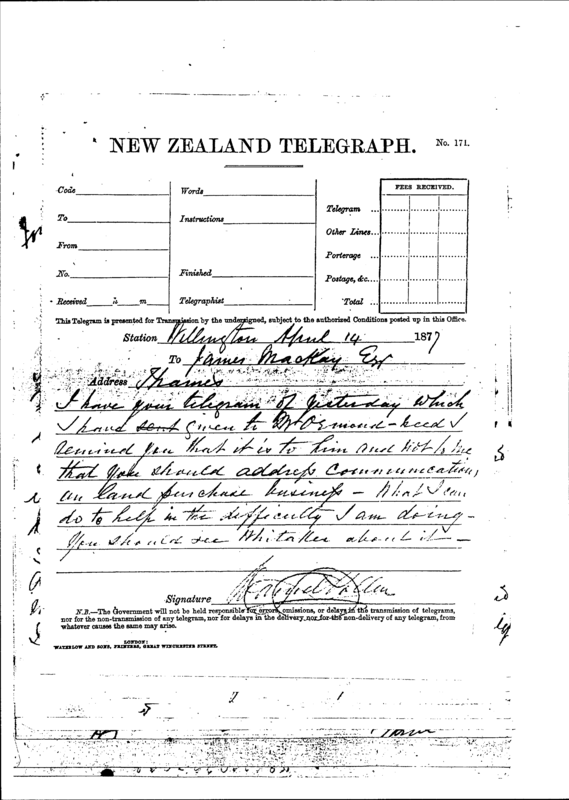 NEW ZEALAND TELEGRAPH.
No. 171.
Code
Words
FEES RECEIVED.
Telegram ...
To
Instructions
Other Lines...
From
Porterage ...
No.
Finished
Postage, &c....
Received h m
Telegraphist
Total ...
This Telegram is presented for Transmission by the undersigned, subject to the authorized Conditions posted up in this Office.
Station Wellington April 14 1877
To James Mackay Esq
Address Thames
I have your telegram of yesterday which
I have sent given to Mr Ormond - need I
remind you that it is to him and not to me
that you should address communications
on land purchase business - What I can
do to help in the difficulty I am doing -
You should see Whitaker about it -
Signature
N.B.—The Government will not be held responsible for errors, omissions, or delays in the transmission of telegrams,
nor for the non-transmission of any telegram, nor for delays in the delivery nor for the non-delivery of any telegram, from
whatever causes the same may arise.
LONDON:
WATERLOW AND SONS, PRINTERS, GREAT WINCHESTER STREET.